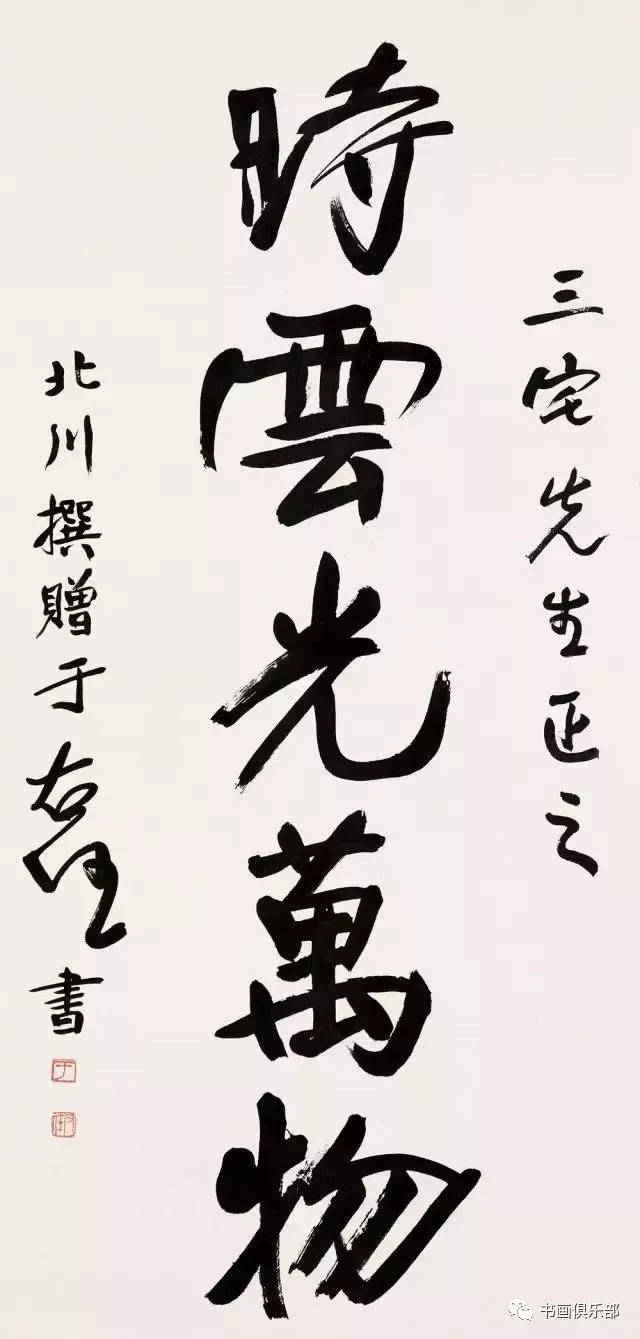 三宅先生正之
時雲光萬物
北川撰贈于右任書
于
书画俱乐部